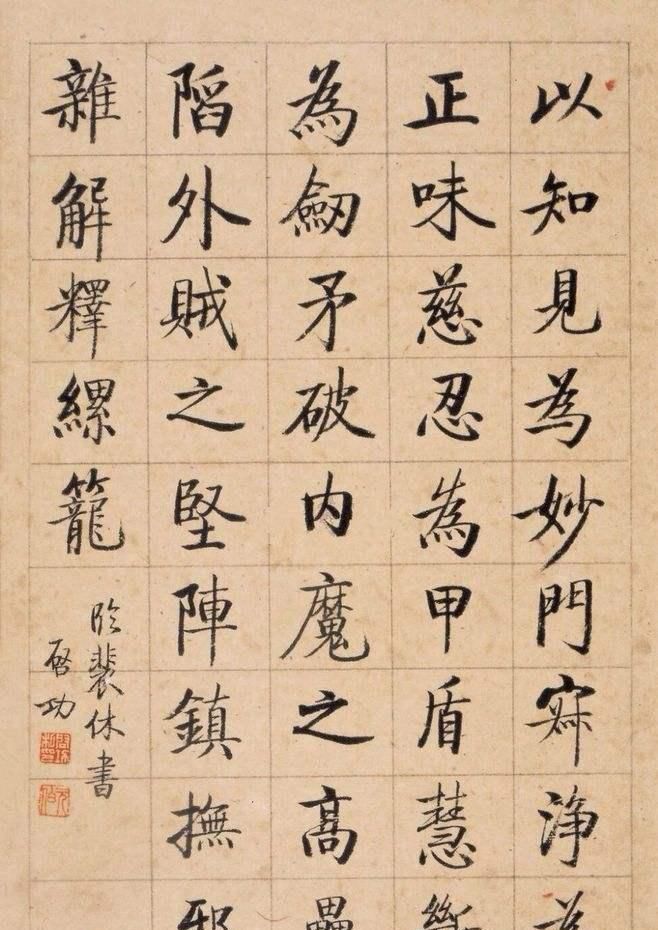 以知見為妙門寂淨為
正味慈忍為甲盾慧斷
為劒矛破内魔之高壘
陷外賊之堅陣鎮撫邪
雜解釋縲籠
临裴休書
啓功